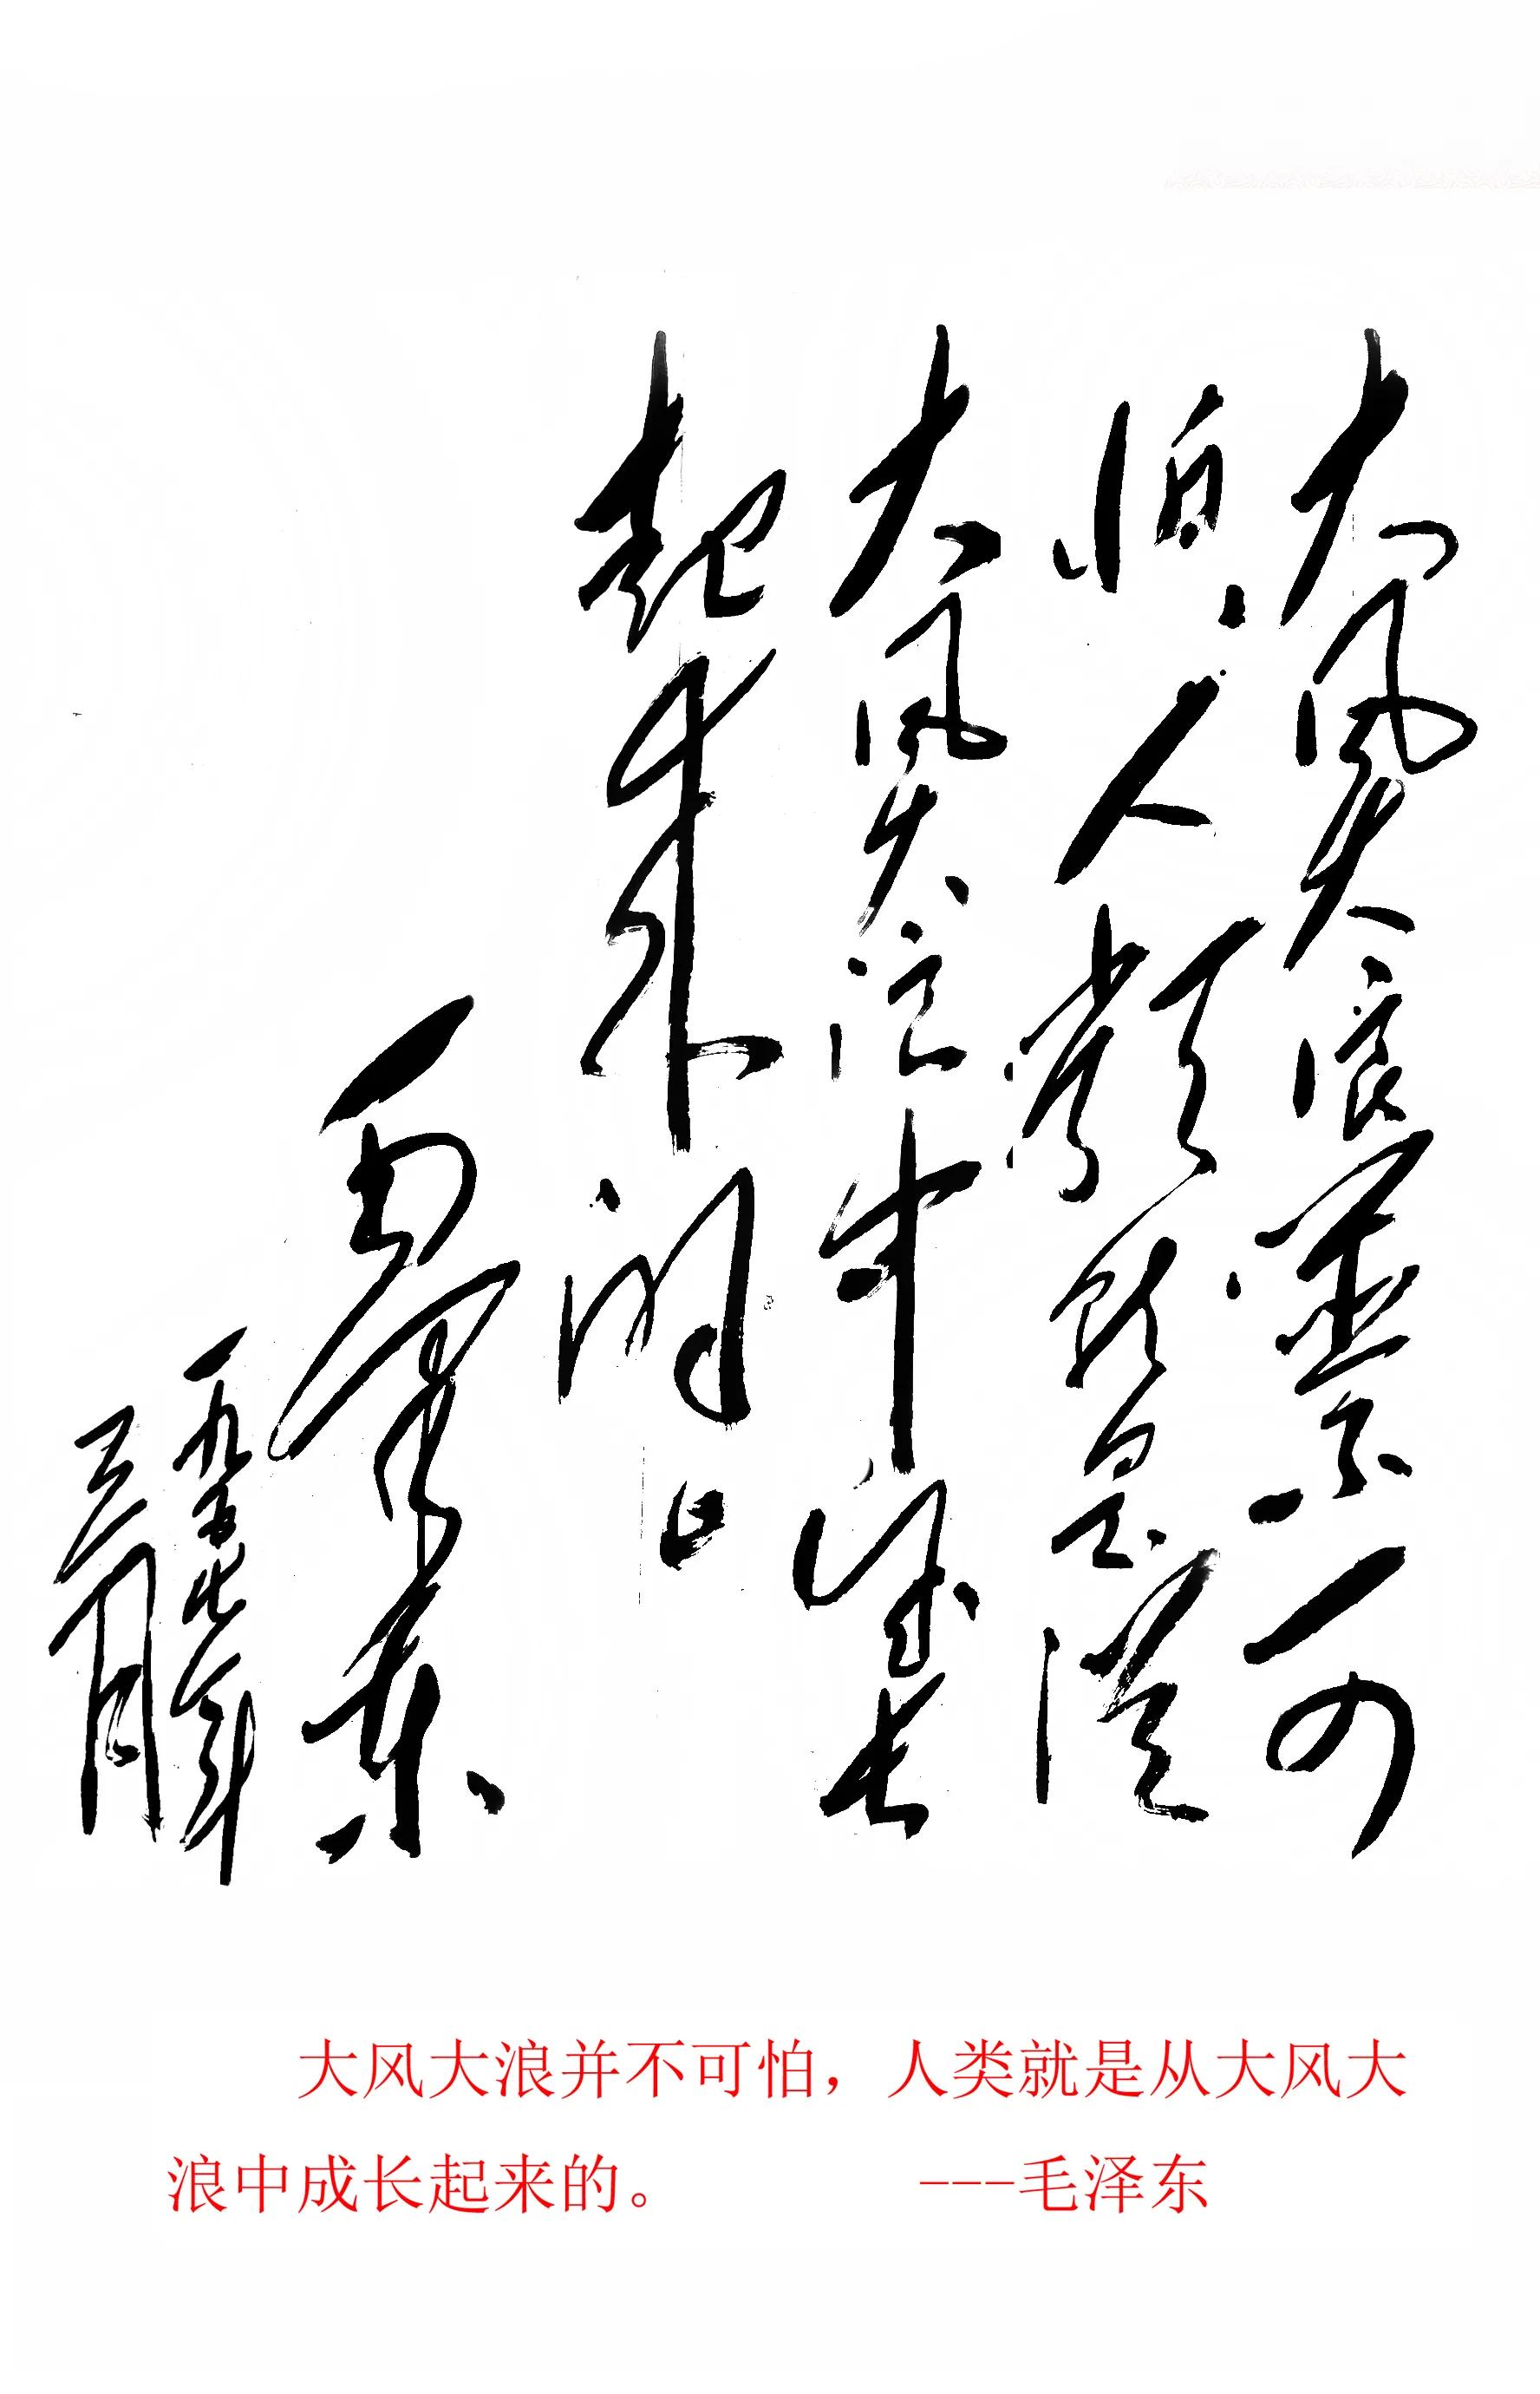 大风大浪並不可
怕，人类就是從
大风大浪中成长
起来的。
毛泽东
一九五七年
三月
大风大浪并不可怕，人类就是从大风大
浪中成长起来的。 ---毛泽东